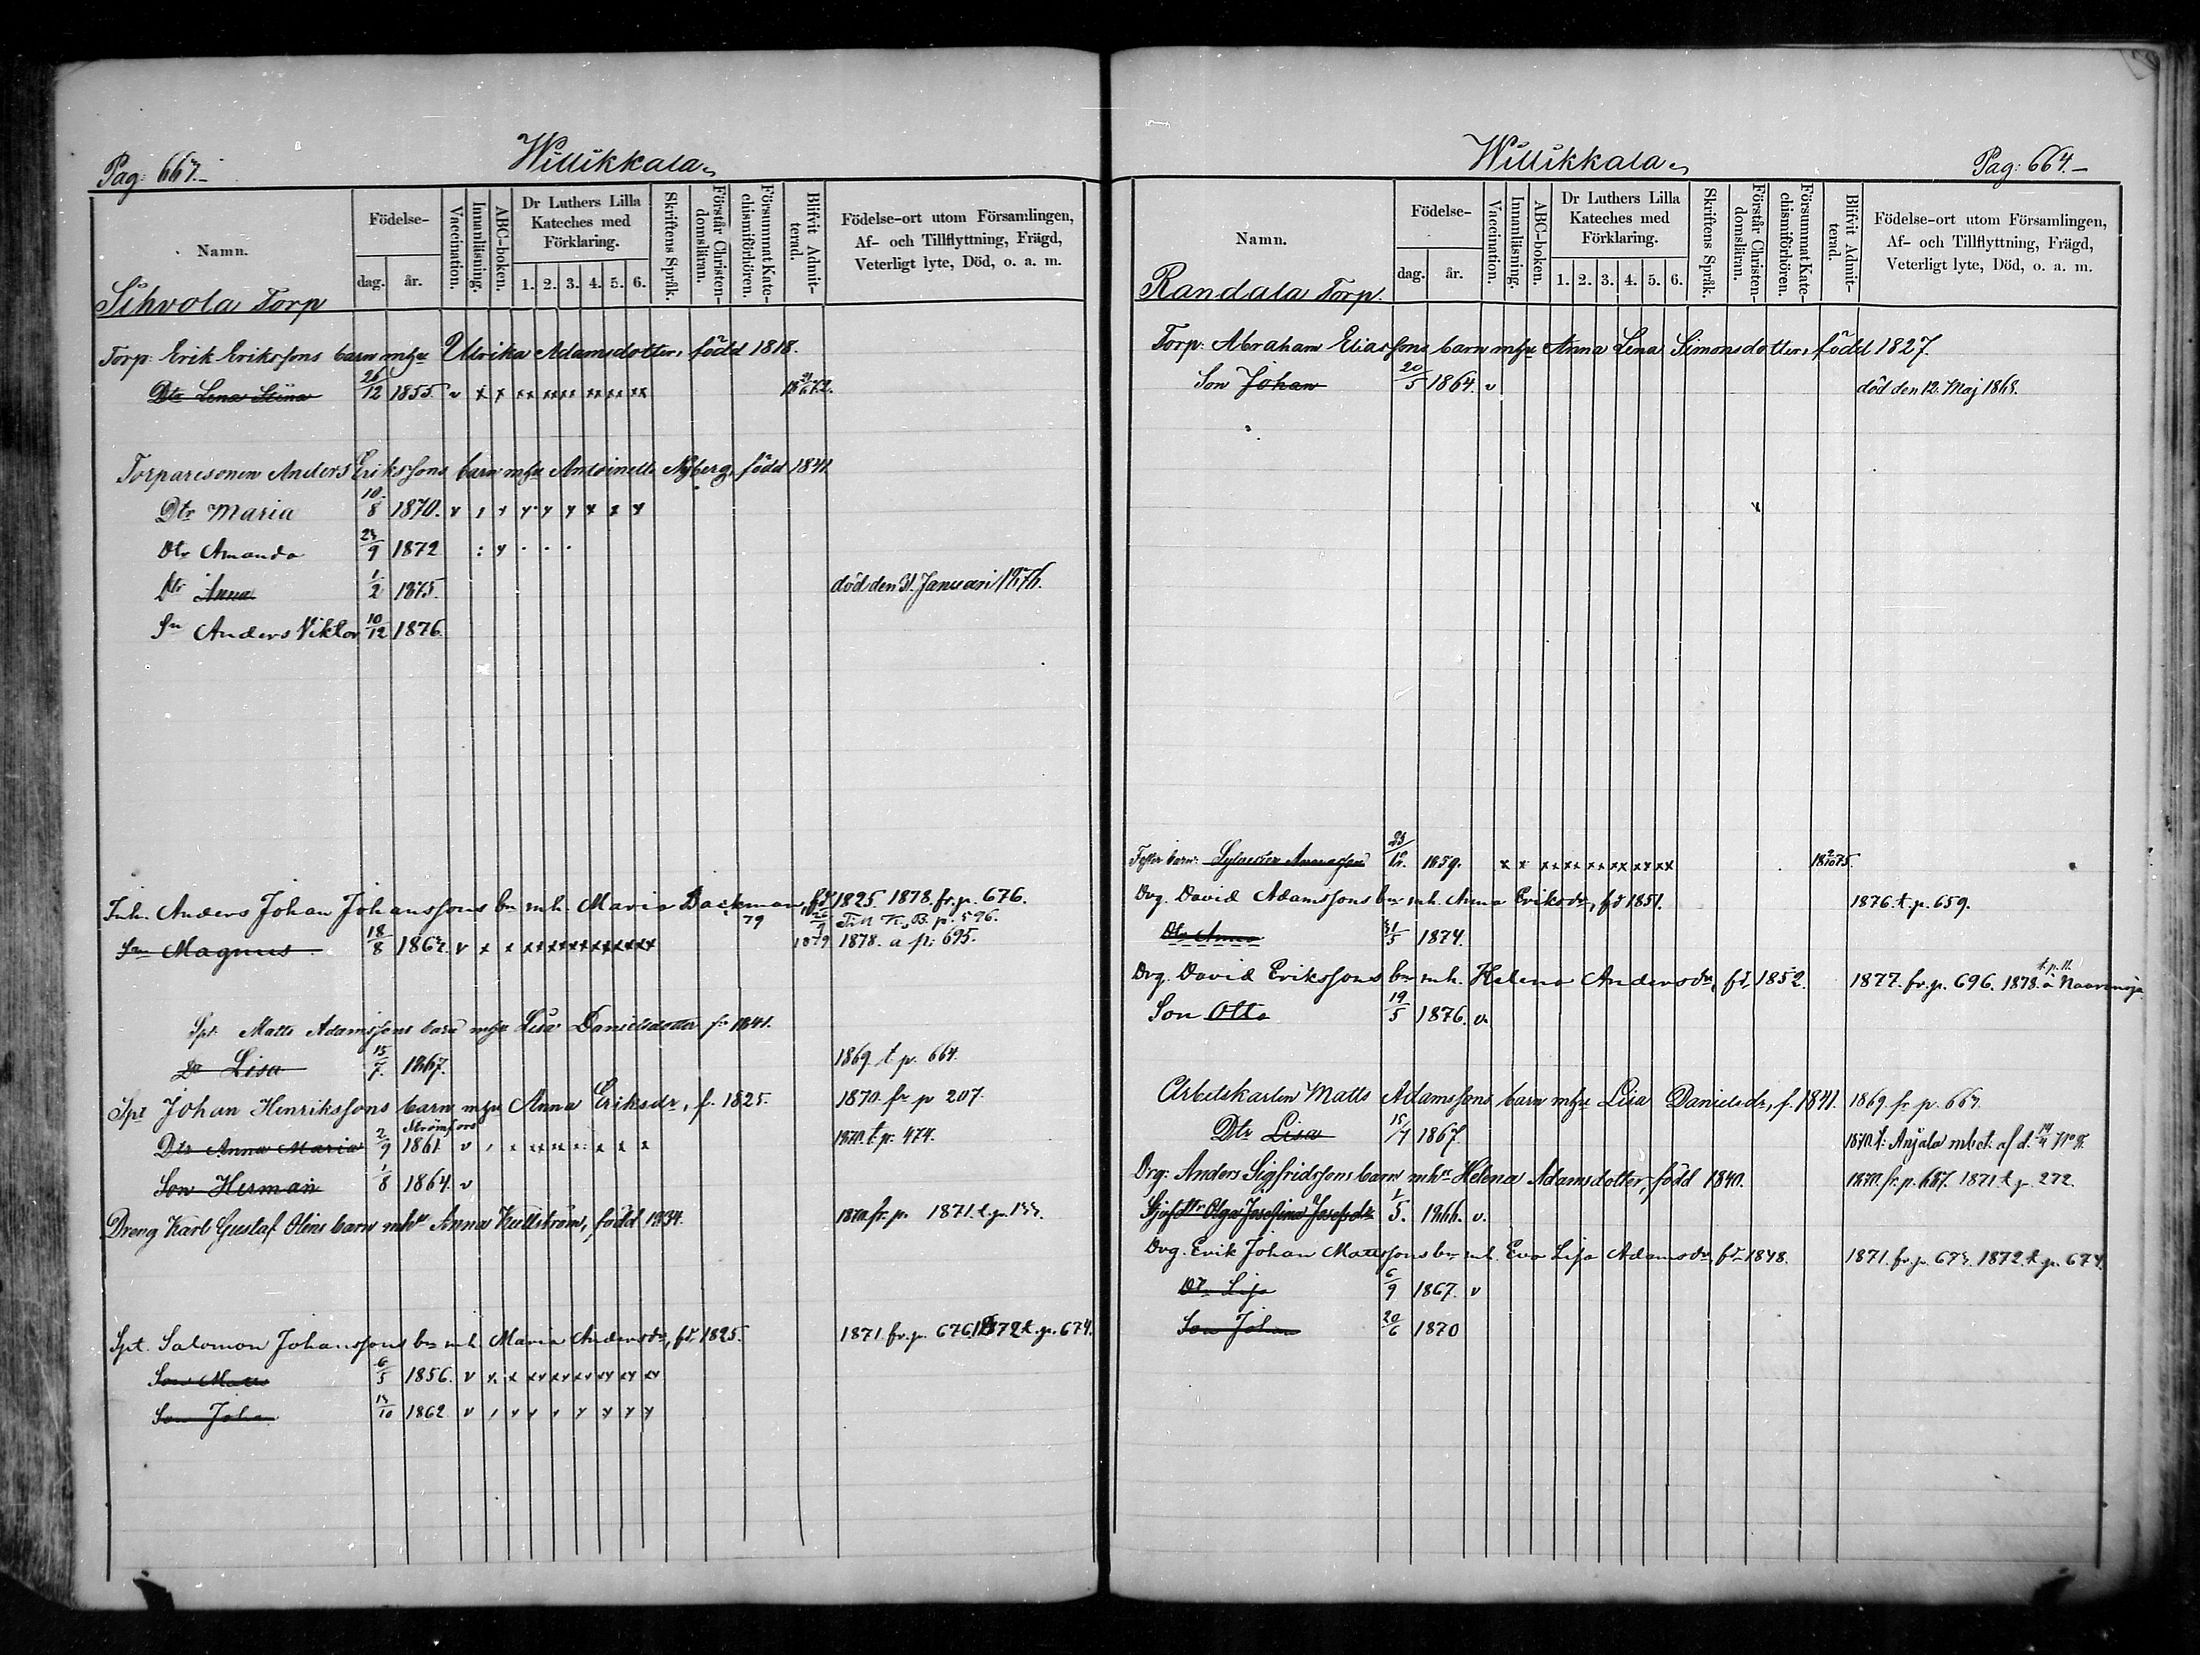 Pag: 667.
Willikkala
Namn.
Födelse-
dag. år.
Vaccination.
Innanläsning.
ABC-boken.
Dr Luthers Lilla Kateches med Förklaring.
1. 2. 3. 4. 5. 6.
Skriftens Språk.
Förstår Christendomsläran.
Försummat Katechismiförhören.
Blifvit Admitterad.
Födelse-ort utom Församlingen,
Af- och Tillflyttning, Frägd,
Veterligt lyte, Död, o. a. m.
Sihvola Torp
Torp: Erik Erikssons barn mhu Ulrika Adamsdotter, född 1818.
Dtr Lena Stina 25/12 1855. v x x xx xx xx xx xx xx
Torparesonen Anders Erikssons barn mhu Antoinetta Nyberg, född 1841
Dtr Maria 10/8 1870. v
Dtr Amanda 1872
Dtr Anna 1/2 1875. död den 31. Januari 1876.
Sn Anders Viktor 10/12 1876.
Inh. Anders Johan Johanssons bn mh. Maria Backman, fd 1825. 1878. fr. p. 676.
79 Till K. B. p. 596.
Sn Magnus 18/8 v x x 1879 1878. a p: 695.
Spt Matts Adamssons barn mhu Lisa Danielsdotter f. 1841.
Dr Lisa 15/7 1867. 1869 t p. 664.
Spt Johan Henrikssons barn mhu Anna Eriksdr, f. 1825. 1870 fr p 207.
Strömfors
Dtr Anna Maria 2/9 1861 v 1870. t. p: 474.
Son Herman 1/8 1864. v
Dreng Karl Gustaf Olins barn mhr Anna Kullström, född 1834. 1870 fr. p. 1871. t. p.
Spt. Salomon Johanssons bn mh. Maria Andersdr, fd. 1825. 1871. fr. p. 676. 1872 t. p. 674.
Son Matts 6/5 1856. v
Son Johan 1862. v
Willikkala
Pag: 664.
Namn.
Födelse-
dag. år.
Vaccination.
Innanläsning.
ABC-boken.
Dr Luthers Lilla Kateches med Förklaring.
1. 2. 3. 4. 5. 6.
Skriftens Språk.
Förstår Christendomsläran.
Försummat Katechismiförhören.
Blifvit Admitterad.
Födelse-ort utom Församlingen,
Af- och Tillflyttning, Frägd,
Veterligt lyte, Död, o. a. m.
Randala Torp.
Torp: Abraham Eliassons barn mhu Anna Lena Simonsdotter, född 1827.
Son Johan 20/5 1864. v död den 12. Maj 1868.
Foster barn: 1859. x x xx xx xx xx xx xx
Drg. David Adamssons bn mh. Anna Eriksdr, fd 1851. 1876. t. p. 659.
Dtr Anna 31/5 1874.
Drg. David Erikssons bn mh. Helena Andersdr, fd. 1852. 1877. fr. p. 696. 1878.
Son Otto 19/5 1876. v.
Arbetskarlen Matts Adamssons barn mhu Lisa Danielsdr, f. 1841. 1869 fr p. 667.
Dtr Lisa 15/7 1867. 1870. t: Anjala mbet: af d.
Drg: Anders Sigfridssons barn mhr Helena Adamsdotter, född 1840. 1870. fr. p. 687. 1871 t. p. 272.
Styfdtr Olga Josefina Josefsdr 1/5. 1866. v.
Drg. Erik Johan Mattssons bn mh. Eva Lisa Adamsdr, fd 1848. 1871. fr. p. 1872. t. p. 674.
Dtr Lisa 6/9 1867. v
Son Johan 20/6 1870